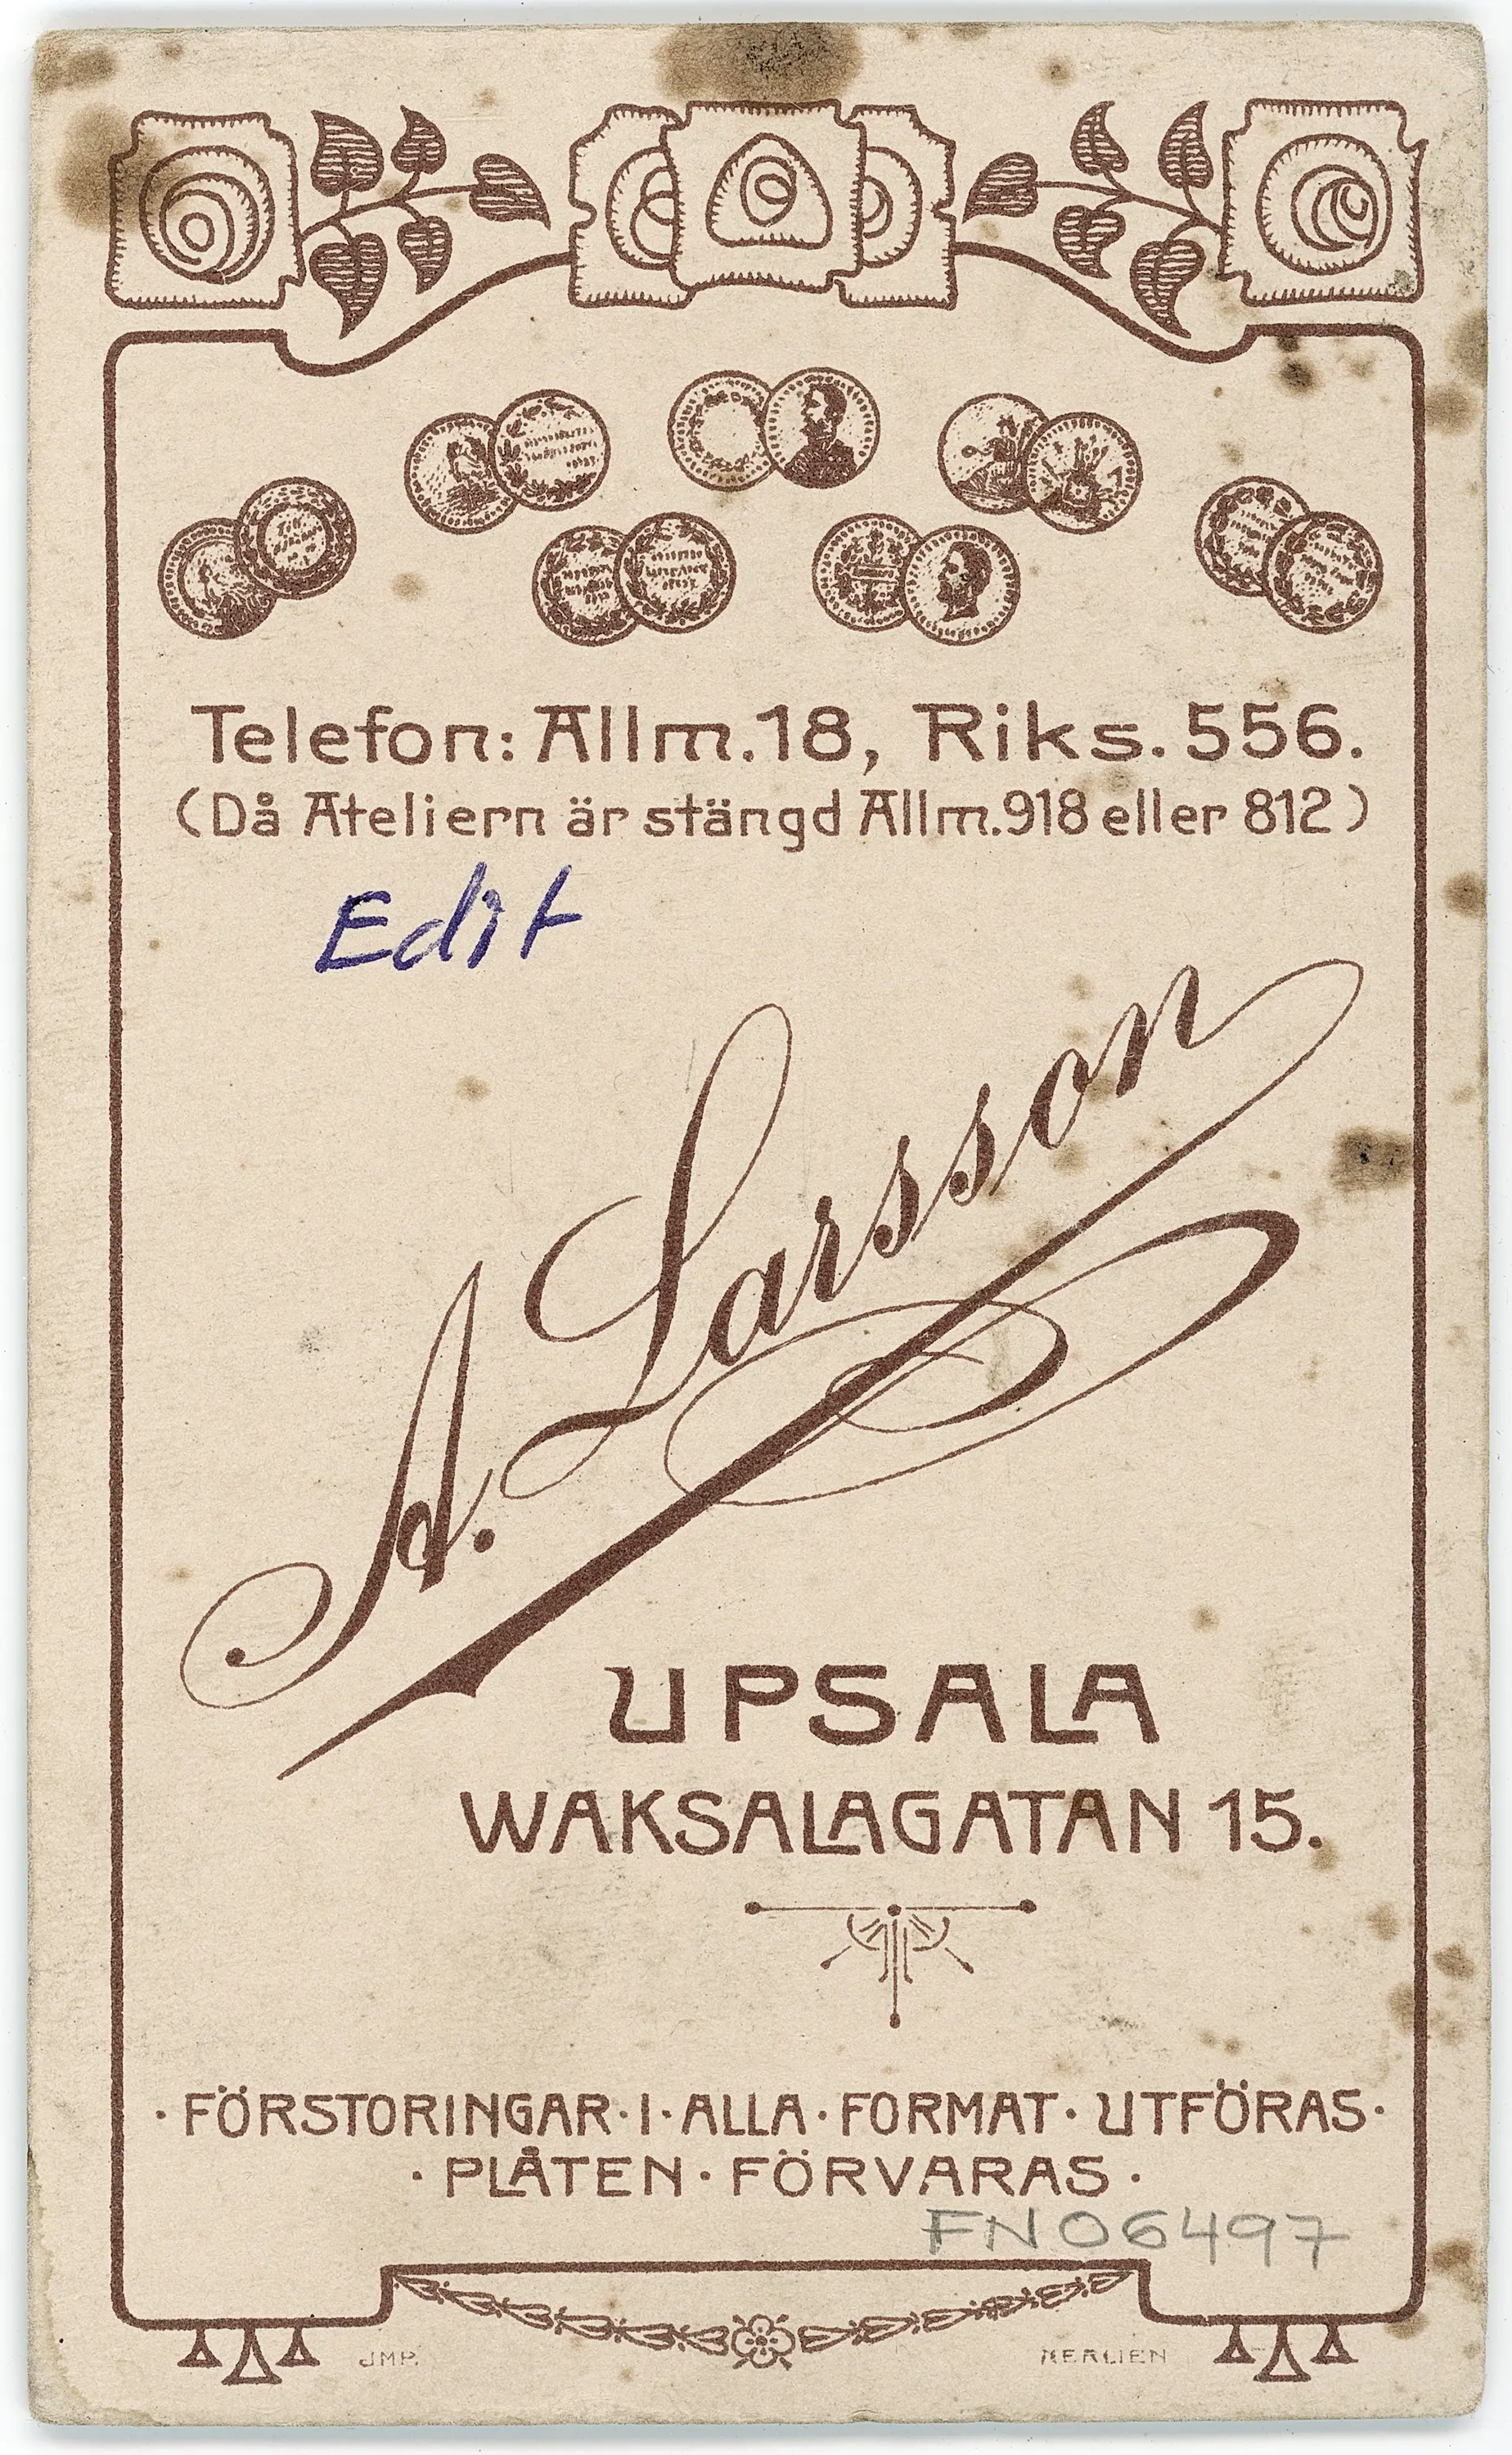 Telefon: Allm. 18, Riks. 556.
(Då Ateliern är stängd Allm. 918 eller 812)
Edit
A. Larsson
UPSALA
WAKSALAGATAN 15.
· FÖRSTORINGAR · I · ALLA · FORMAT · UTFÖRAS ·
· PLÅTEN · FÖRVARAS ·
FN06497
JMP. NERLIEN